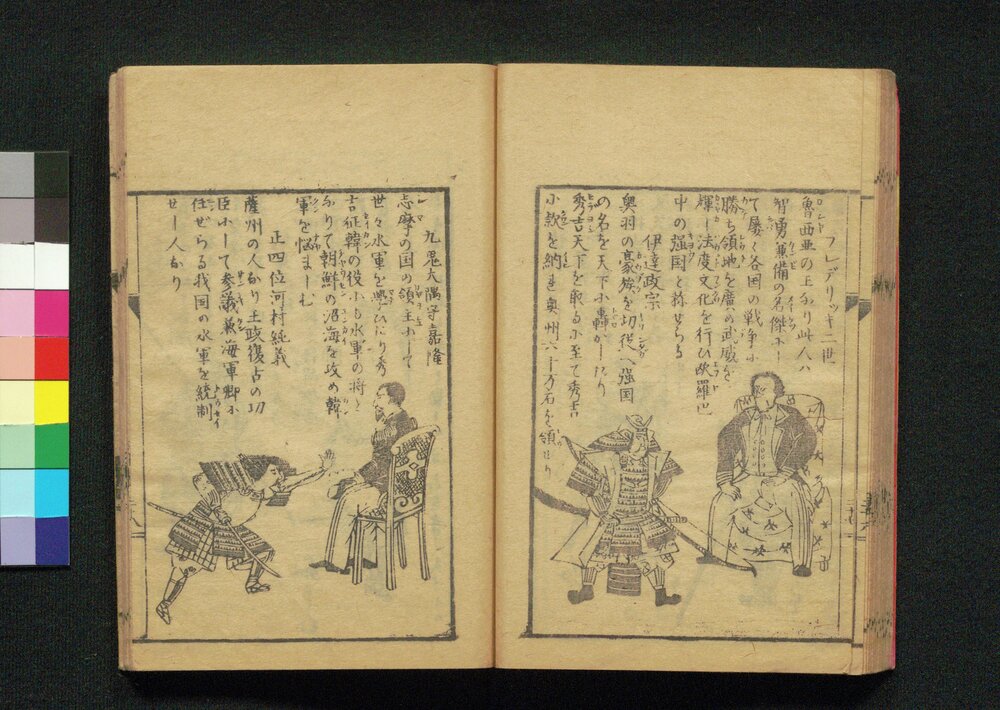 フレデリッキ二世
魯西亜の王なり此人ハ
智勇兼備の名傑にし
て屡く各国の戦争に
勝ち領地を廣め武威を
輝し法度文化を行ひ欧羅巴
中の强国と称せらる
伊達政宗
奥羽の豪族を切従へ强国
の名を天下に轟かしたり
秀吉天下を取るに至て秀吉
に款を納れ奥州六十万石を領せり
九鬼大隅守嘉隆
志摩の国の領主にして
世々水軍を興ひたり秀
吉征韓の役にも水軍の将と
なりて朝鮮の沿海を攻め韓
軍を悩ましむ
正四位河村純義
薩州の人なり王政復古の功
臣にして参議兼海軍卿に
任ぜらる我国の水軍を統制
せし人なり